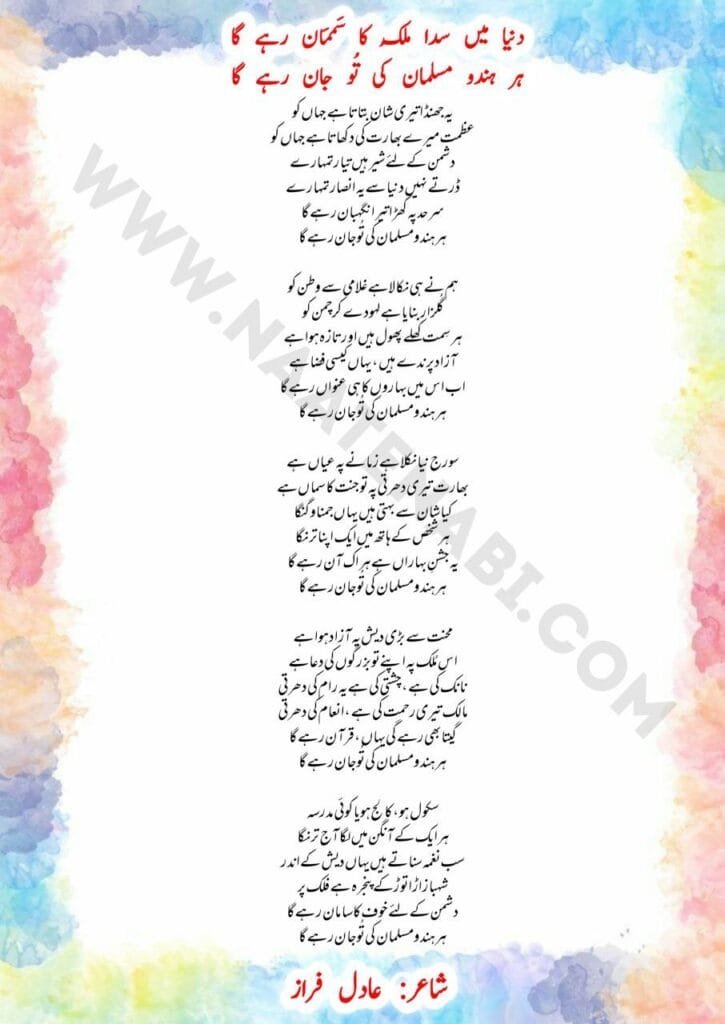 دنیا میں سدا ملک کا سَممَان رہے گا
ہر ہندو مسلمان کی تُو جان رہے گا
یہ جھنڈا تیری شان بتاتا ہے جہاں کو
عظمت میرے بھارت کی دکھاتا ہے جہاں کو
دشمن کے لئے شیر ہیں تیار تمہارے
ڈرتے نہیں دنیا سے یہ انصار تمہارے
سرحد پہ کھڑا تیرا نگہبان رہے گا
ہر ہندو مسلمان کی تُو جان رہے گا
ہم نے ہی نکالا ہے غلامی سے وطن کو
گلزار بنایا ہے لہو دے کر چمن کو
ہر سمت کھلے پھول ہیں اور تازہ ہوا ہے
آزاد پرندے ہیں، یہاں کیسی فضا ہے
اب اس میں بہاروں کا ہی عنواں رہے گا
ہر ہندو مسلمان کی تُو جان رہے گا
سورج نیا نکلا ہے زمانے پہ عیاں ہے
بھارت تیری دھرتی پہ تو جنت کا سماں ہے
کیا شان سے بہتی ہیں یہاں جمنا و گنگا
ہر شخص کے ہاتھ میں ایک اپنا ترنگا
یہ جشنِ بہاراں ہے ہر اک آن رہے گا
ہر ہندو مسلمان کی تُو جان رہے گا
محنت سے بڑی دیش یہ آزاد ہوا ہے
اس مُلک پہ اپنے تو بزرگوں کی دعا ہے
نانک کی ہے، چشتی کی ہے یہ رام کی دھرتی
مالک تیری رحمت کی ہے، انعام کی دھرتی
گیتا بھی رہے گی یہاں، قرآن رہے گا
ہر ہندو مسلمان کی تُو جان رہے گا
سکول ہو، کالج ہو یا کوئی مدرسہ
ہر ایک کے آنگن میں لگا آج ترنگا
سب نغمہ سناتے ہیں یہاں دیش کے اندر
شہباز اڑا توڑ کے پنجرہ ہے فلک پر
دشمن کے لئے خوف کا سامان رہے گا
ہر ہندو مسلمان کی تُو جان رہے گا
شاعر: عادل فراز
WWW.NAATENABI.COM